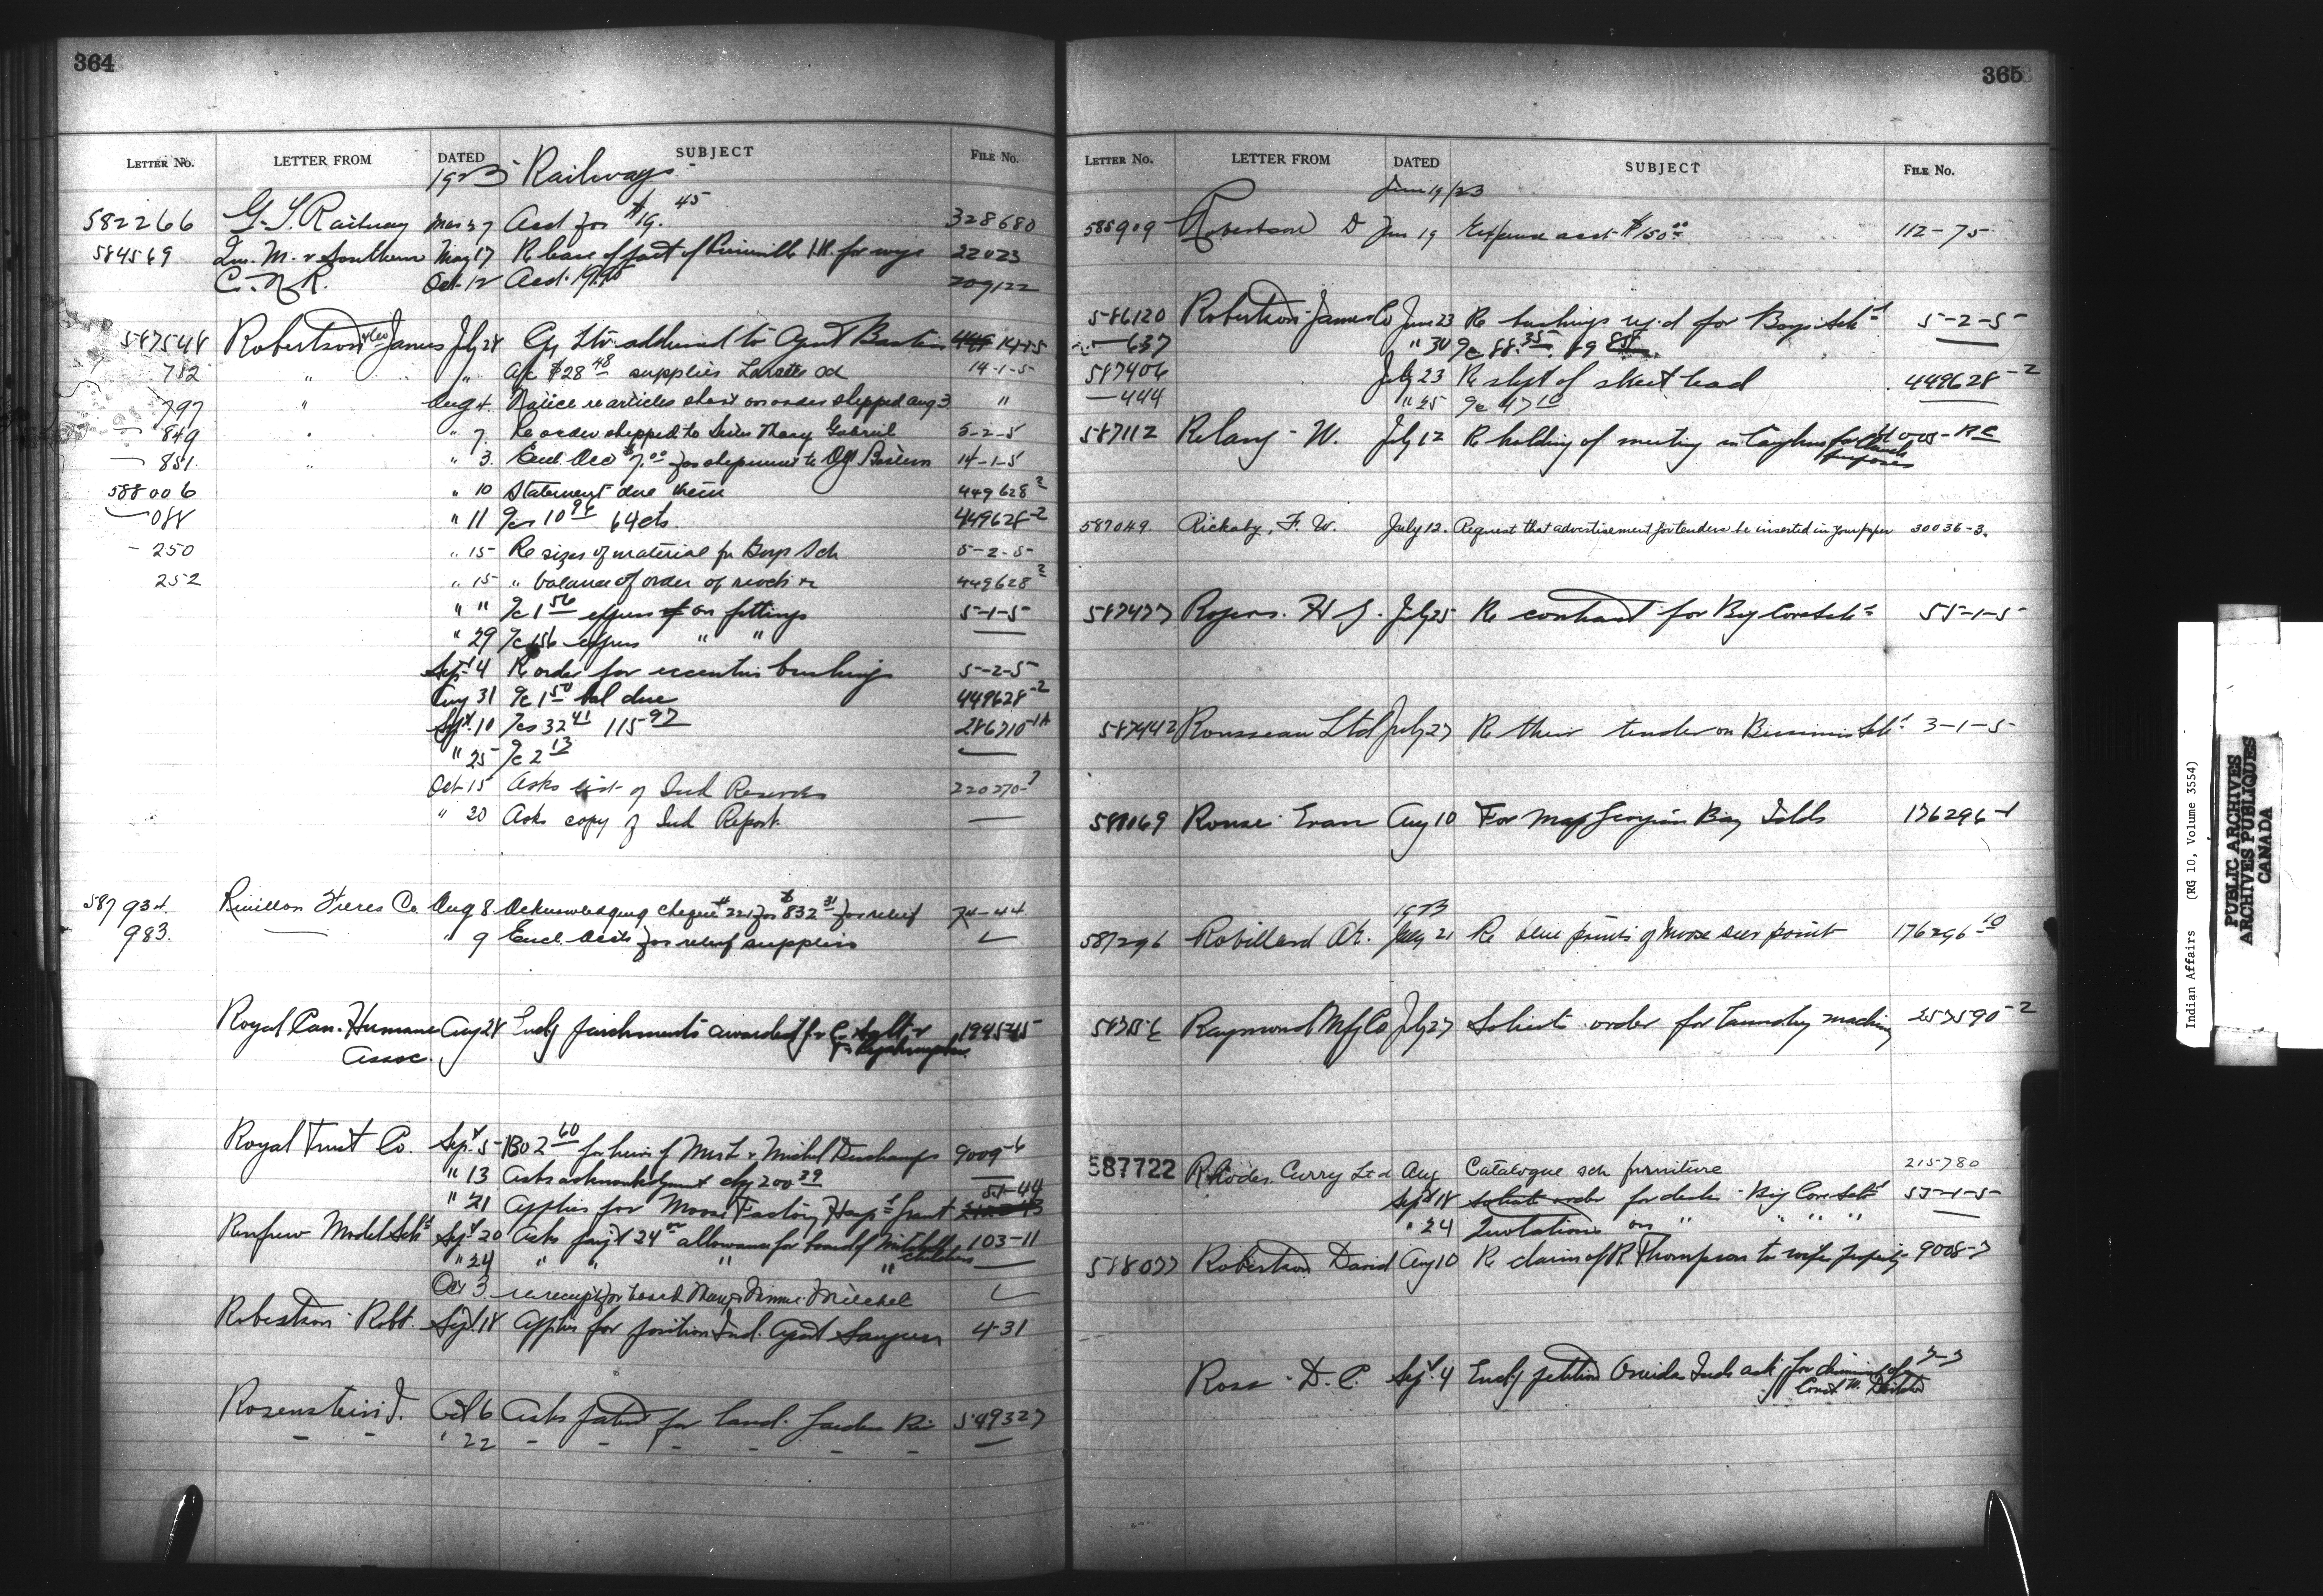 364
LETTER No. LETTER FROM DATED SUBJECT FILE No.
1923 Railways
582266 G. T. Railway Mar 27 Acct for $19.45 328680
584569 Que. M. & Southern May 17 Re lease of part of I.R. for wye 22023
C. N. R. Oct 12 Acct. 19.95 209122
587548 Robertson James July 28 Cy Ltr addressed to Agent Bastien 14-1-5
782 " " A/c $28.48 supplies Lorette 14-1-5
797 " Aug 4. Notice re articles short on order shipped Aug 3 "
849 " " 7. Re order shipped to Sister Mary Gabriel 5-2-5
851. " " 3. Encl. Acc $7.00 for shipment to Bastien 14-1-5
588006 " 10 Statement due them 449628-2
088 " 11 a/cs 10.96 64cts. 449628-2
- 250 " 15 Re sizes of material for Boys Sch 5-2-5
252 " 15 " balance of order of 449628-2
" " a/c 1.56 on fittings 5-1-5
" 29 a/c 1.56 " "
Sept 4 Re order for eccentric bushings 5-2-5
Aug 31 a/c 1.50 bal due 449628-2
Sept. 10 a/cs 32.41 115.97 286710-1A
" 25 a/c 2.13
Oct 15 Asks list of Ind Reserves 220270-
" 20 Asks copy of Ind Report.
587934 Revillon Freres Co Aug 8 Acknowledging cheque # 221 for $832.31 for relief 74-44
983. " 9 Encl. accts for relief supplies
Royal Can. Humane Aug 28 Encl'g parchments awarded 194545
Assoc.
Royal Trust Co. Sept. 5 602.60 for heirs of Deschamps 9009-6
" 13 Asks acknowledgment chq 200.39
" 21 Applies for Moose Factory Hosp'l Grant 51-44
Renfrew Model Sch'l Sept 20 Asks paym't 24.00 allowance for board of Mitchell 103-11
" 24 " " " " children
Oct 3 re receipt for board Mary & Minnie Mitchel
Robertson Robt. Sept. 18 Applies for position Ind. Agent Saugeen 4-31
Rosenstein J. Oct 6 Asks patent for land. Garden Riv 549327
" 22
365
LETTER No. LETTER FROM DATED SUBJECT FILE No.
June 19/23
585909 Robertson D Jun 19 Expense acct $150.00 112-75
586120 Robertson James Co June 23 Re bushings req'd for Boys Sch'l 5-2-5
637 " 30 a/c 88.35. 89
587406 July 23 Re shp't of sheet lead 449628-2
444 " 25 a/c 47.10
587112 W. July 12 Re holding of meeting in for Church purposes
587049. Rickaby, F. W. July 12. Request that advertisement for tenders be inserted in your paper 30036-3.
587477 Rogers. H J. July 25 Re contract for Big Cove Sch'l 55-1-5
587442 Rousseau Ltd July 27 Re their tender on Bersimis Sch'l 3-1-5
588069 Rouse Evan Aug 10 For Map Georgian Bay Islds 176296-1
1923
587296 Robillard July 21 Re blue prints of Moose deer point 176296-10
Raymond Mfg Co July 27 Solicits order for laundry machine 257590-2
587722 Rhodes. Curry Ltd Aug Catalogue sch furniture 215780
Sept 18 Solicits order for desks - Big Cove Sch'l 55-1-5
" 24 Quotations on " " " "
588077 Robertson David Aug 10 Re claim of R Thompson to wifes property 9008-7
Ross - D. C. Sept. 4 Encl'g petition Oneida Inds ask for dismissal of
Indian Affairs (RG 10, Volume 3554)
PUBLIC ARCHIVES
ARCHIVES PUBLIQUES
CANADA